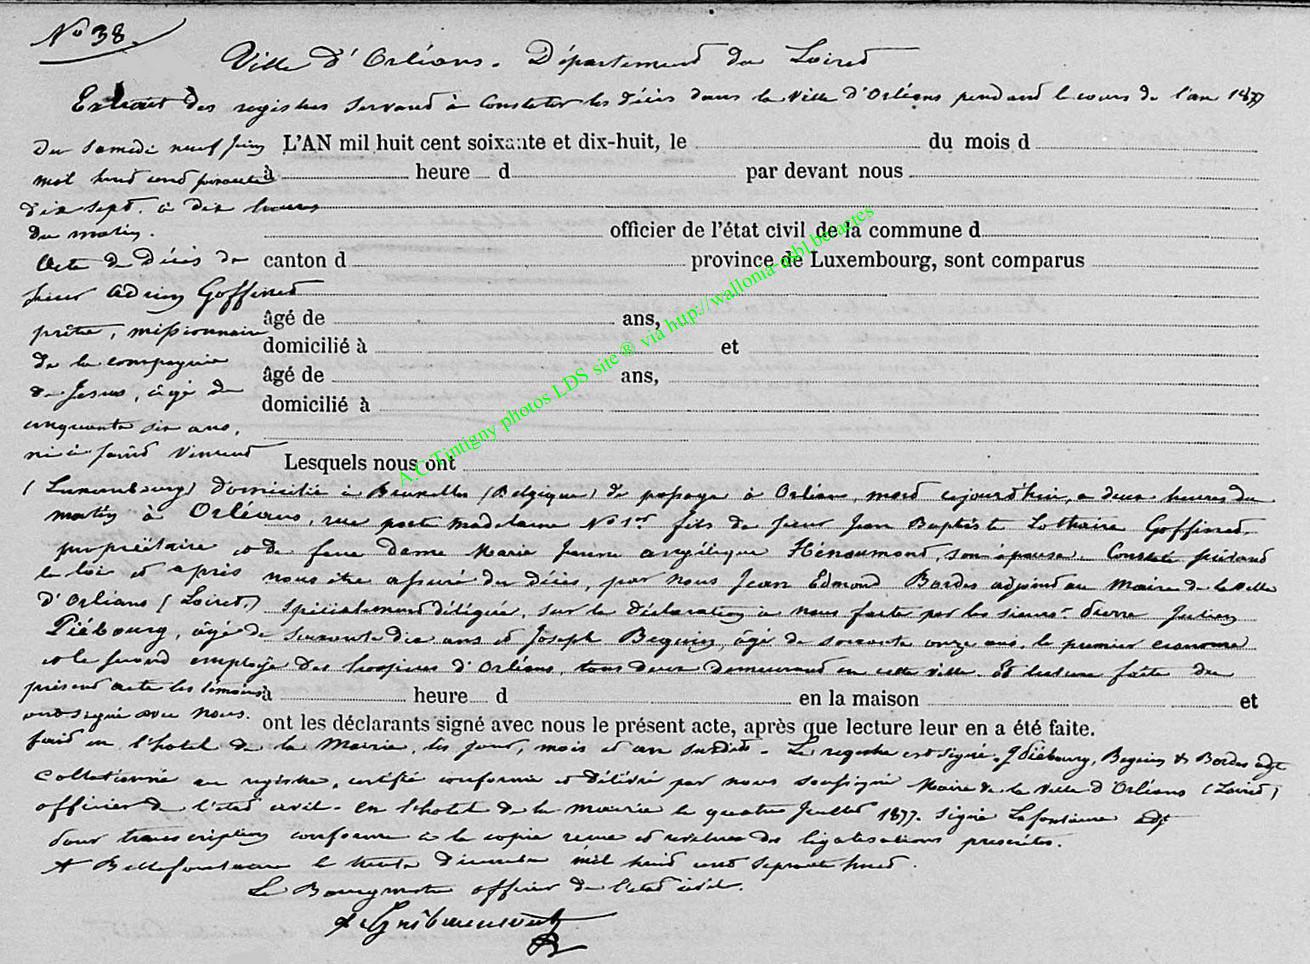 N° 38
Ville d'Orléans. Département du Loiret
Extrait des registres servant à constater les décès dans la ville d'Orléans pendant le cours de l'an 1877
Du samedi neuf juin
mil huit cent soixante
dix sept, à dix heures
du matin.
Acte de Décès de
sieur Adrien Goffinet
prêtre, missionnaire
de la compagnie
de Jesus, âgé de
cinquante six ans,
né à Saint Vincent
L'AN mil huit cent soixante et dix-huit, le du mois d
à heure d par devant nous
officier de l'état civil de la commune d
canton d province de Luxembourg, sont comparus
âgé de ans,
domicilié à et
âgé de ans,
domicilié à
Lesquels nous ont
(Luxembourg) domicilié à Bruxelles (Belgique) de passage à Orléans, mort cejourd'hui, à deux heures du
matin à Orléans, rue porte Madelaine N° 1er fils de sieur Jean Baptiste Lothaire Goffinet
propriétaire et de feue dame Marie Jeanne Angélique Hénoumont, son épouse. Constaté suivant
la loi et après nous être assuré du décès, par nous Jean Edmond Bordes adjoint au Maire de la ville
d'Orléans (Loiret,) spécialement délégué, sur la déclaration à nous faite par les sieurs Pierre Julien
Piébourg, âgé de soixante dix ans et Joseph Beguin, âgé de soixante onze ans, le premier econome
et le second employé des hospices d'Orléans, tous deux demeurant en cette ville. Et lecture faite du
présent acte les témoins
ont signé avec nous.
à heure d en la maison et
ont les déclarants signé avec nous le présent acte, après que lecture leur en a été faite.
fait en l'hotel de la Mairie, les jour, mois et an susdits. Le registre est signé, Piébourg, Beguin & Bordes adjt
Collationné au registre, certifié conforme et délivré par nous soussigné Maire de la Ville d'Orléans (Loiret)
officier de l'état civil. En l'hotel de la mairie le quatre Juillet 1877. signé Lafontaine adjt
Pour transcription conforme à la copie reçue et revêtue des légalisations prescrites.
A Bellefontaine le trente Décembre mil huit cent septante huit.
Le Bourgmestre officier de l'état civil.
A.C. Tintigny photos LDS site ® via http://wallonia-asbl.be/actes